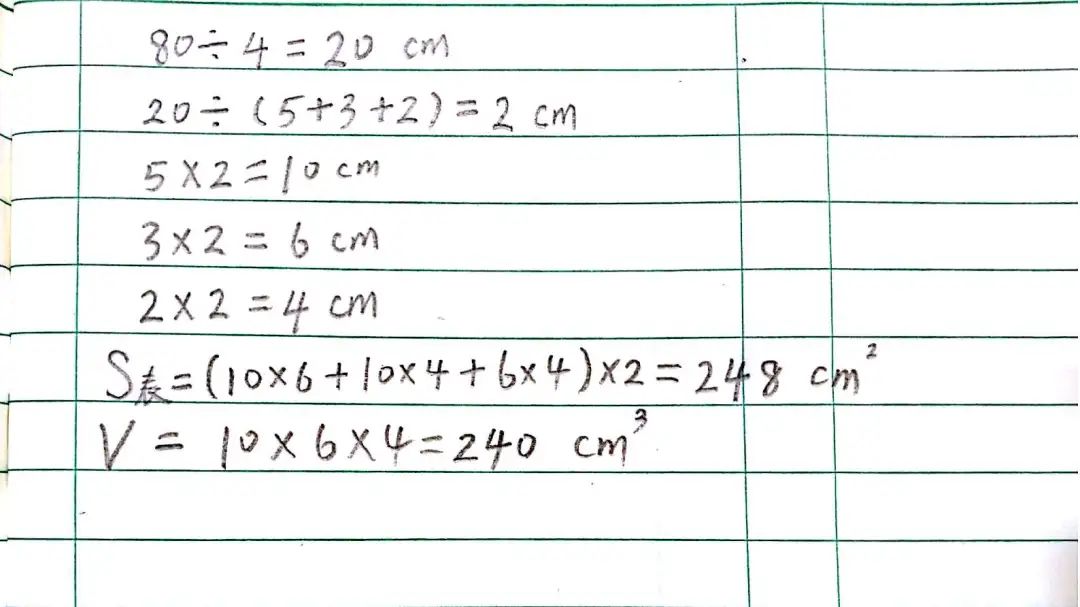 80÷4=20 cm
20÷(5+3+2)=2 cm
5×2=10 cm
3×2=6 cm
2×2=4 cm
S表=(10×6+10×4+6×4)×2=248 cm²
V=10×6×4=240 cm³